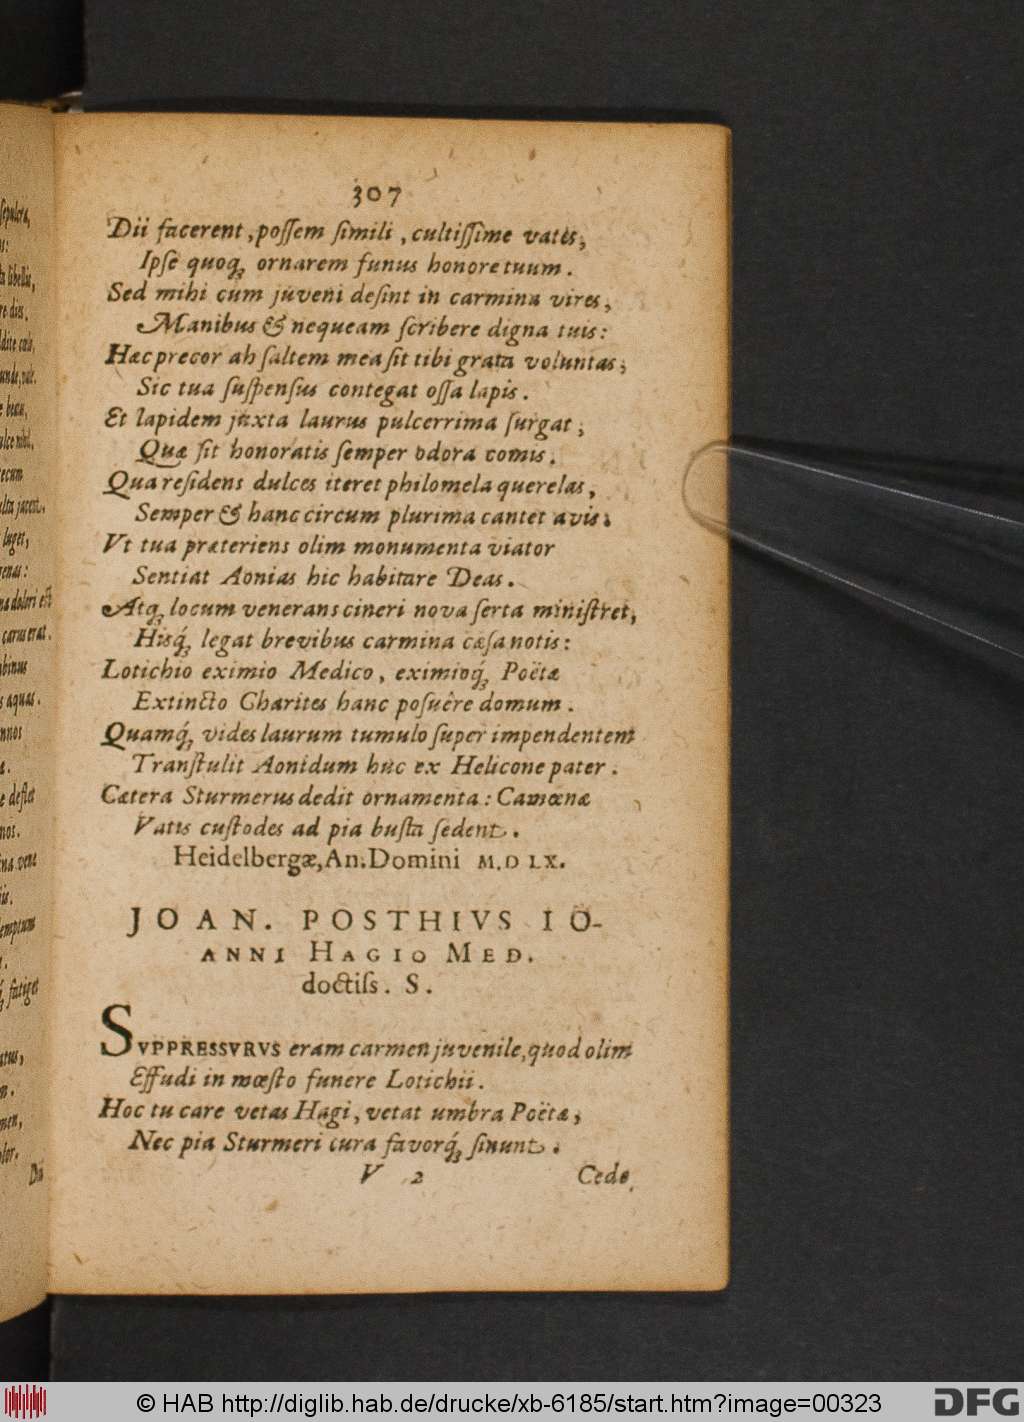 307
Dii facerent, possem simili, cultissime vates,
Ipse quoq; ornarem funus honore tuum.
Sed mihi cum juveni desint in carmina vires,
Manibus & nequeam scribere digna tuis:
Hæc precor ah saltem mea sit tibi grata voluntas;
Sic tua suspensus contegat ossa lapis.
Et lapidem juxta laurus pulcerrima surgat;
Quæ sit honoratis semper odora comis.
Qua residens dulces iteret philomela querelas,
Semper & hanc circum plurima cantet avis.
Vt tua præteriens olim monumenta viator
Sentiat Aonias hic habitare Deas.
Atq; locum venerans cineri nova serta ministret,
Hisq́; legat brevibus carmina cæsa notis:
Lotichio eximio Medico, eximioq́; Poëtæ
Extincto Charites hanc posuêre domum.
Quamq́; vides laurum tumulo super impendentem
Transtulit Aonidum huc ex Helicone pater.
Cætera Sturmerus dedit ornamenta: Camœnæ
Vatis custodes ad pia busta sedent.
Heidelbergæ, An. Domini M.D LX.
JOAN. POSTHIVS IO-
ANNI HAGIO MED.
doctiss. S.
SVPPRESSVRVS eram carmen juvenile, quod olim
Effudi in mœsto funere Lotichii.
Hoc tu care vetas Hagi, vetat umbra Poëtæ,
Nec pia Sturmeri cura favorq́; sinunt.
V 2 Cede
© HAB http://diglib.hab.de/drucke/xb-6185/start.htm?image=00323
DFG